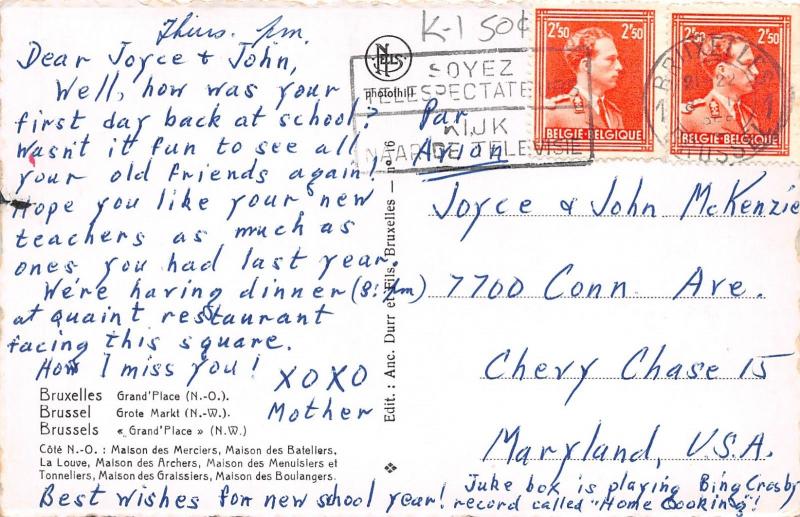 Thurs. pm.
Dear Joyce & John,
Well, how was your
first day back at school?
Wasn't it fun to see all
your old friends again!
Hope you like your new
teachers as much as
ones you had last year.
We're having dinner
at quaint restaurant
facing this square.
How I miss you!
XOXO
Mother
Bruxelles Grand'Place (N.-O.).
Brussel Grote Markt (N.-W.).
Brussels « Grand'Place » (N.W.)
Côté N.-O. : Maison des Merciers, Maison des Bateliers,
La Louve, Maison des Archers, Maison des Menuisiers et
Tonneliers, Maison des Graissiers, Maison des Boulangers.
Best wishes for new school year!
Juke box is playing Bing Crosby
record called "Home Cooking"!
NELS
photothill
Edit. : Anc. Durr et Fils, Bruxelles —
K-1 50¢
SOYEZ
KIJK
NAAR DE TELEVISIE
Par
Avion
2F50 2F50
BELGIE-BELGIQUE
2F50 2F50
BELGIE-BELGIQUE
BRUXELLES
1 1
Joyce & John McKenzie
7700 Conn. Ave.
Chevy Chase 15
Maryland, U.S.A.